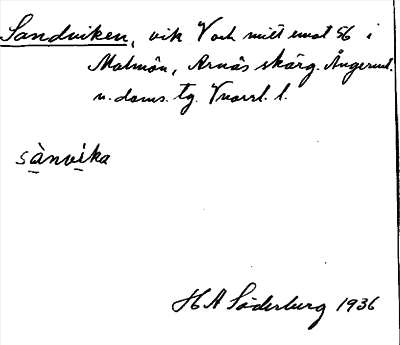 Sandviken, vik V och mitt emot 56 i
Malmön, Arnäs skärg. Ångerml.
n. doms. tg. Vnorrl. l.
sànvika
H A Söderburg 1936